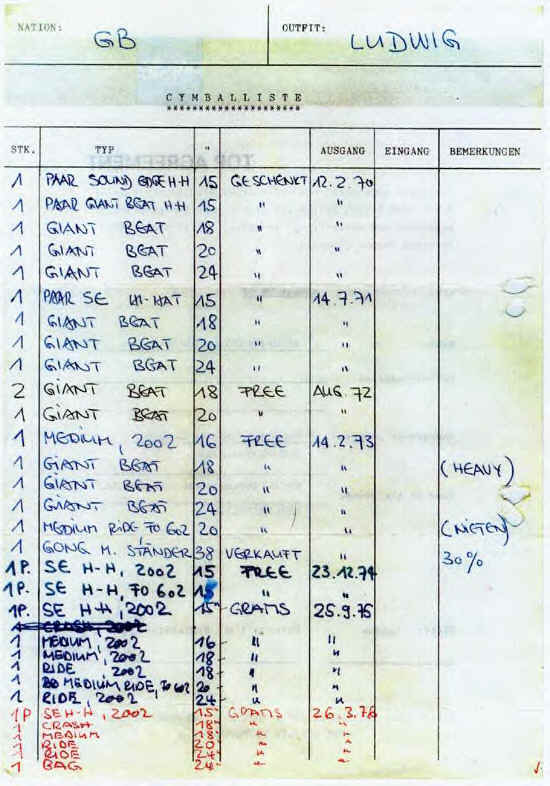 NATION: GB OUTFIT: LUDWIG
CYMBALLISTE
*********************
STK. TYP " AUSGANG EINGANG BEMERKUNGEN
1 PAAR SOUND EDGE H-H 15 GESCHENKT 12.2.70
1 PAAR GIANT BEAT H-H 15 " "
1 GIANT BEAT 18 " "
1 GIANT BEAT 20 " "
1 GIANT BEAT 24 " "
1 PAAR SE HI-HAT 15 " 14.7.71
1 GIANT BEAT 18 " "
1 GIANT BEAT 20 " "
1 GIANT BEAT 24 " "
2 GIANT BEAT 18 FREE AUG. 72
1 GIANT BEAT 20 " "
1 MEDIUM, 2002 16 FREE 14.2.73
1 GIANT BEAT 18 " " (HEAVY)
1 GIANT BEAT 20 " "
1 GIANT BEAT 24 " "
1 MEDIUM RIDE FO 602 20 " " (NIETEN)
1 GONG M. STÄNDER 38 VERKAUFT " 30%
1P. SE H-H, 2002 15 FREE 23.12.74
1P. SE H-H, FO 602 15 " "
1P. SE H-H, 2002 15" GRATIS 25.9.75
1 CRASH 2002
1 MEDIUM, 2002 16 " "
1 MEDIUM, 2002 18" " "
1 RIDE, 2002 18" " "
1 MEDIUM RIDE, FO 602 20" " "
1 RIDE, 2002 24" " "
1P SE H-H, 2002 15" GRATIS 26.3.76
1 CRASH 18" " "
1 MEDIUM 18" " "
1 RIDE 20" " "
1 RIDE 24" " "
1 BAG 24" " "